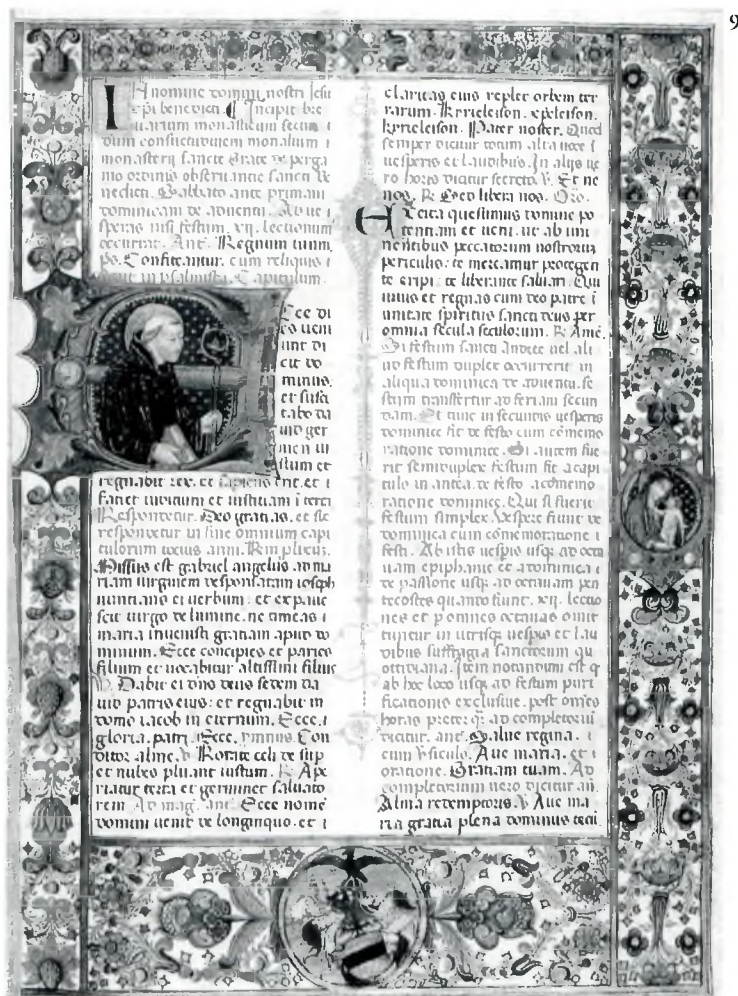 9
In nomine domini nostri Jesu
xpi benedicti. Incipit bre
uiarium monasticum secun
dum consuetudinem monalium
monasterij sancte Grate de perga
mo ordinis obseruantie sancti be
nedicti. Sabbato ante primam
dominicam de aduentu. Ad ue
speras nisi festum. xij. lectionum
occurrat. Ant. Regnum tuum
ps. Confiteantur. cum reliquis
in psalmista. Capitulum.
Ecce di
es ueni
unt di
cit do
minus.
et susci
tabo da
uid ger
men iu
stum et
regnabit rex. et sapiens erit. et
faciet iudicium et iustitiam i terra
Respondetur. Deo gratias. et sic
respondetur in fine omnium capi
tulorum tocius anni.
Missus est gabriel angelus ad ma
riam uirginem desponsatam ioseph
nuntians ei uerbum. et expaue
scit uirgo de lumine. ne timeas
maria inuenisti gratiam apud do
minum. Ecce concipies et paries
filium et uocabitur altissimi filius
V. Dabit ei dns deus sedem da
uid patris eius: et regnabit in
domo iacob in eternum. Ecce.
gloria. patri. Ecce. ymnus. Con
ditor alme. V Rorate celi de sup
et nubes pluant iustum. R Ape
riatur terra et germinet saluato
rem Ad mag. ant. Ecce nome
domini uenit de longinquo. et
claritas eius replet orbem ter
rarum. Kyrieleison. xpeleison.
kyrieleison. Pater noster. Quod
semper dicitur totum alta uoce
uesperis et laudibus. In alijs ue
ro horis dicitur secreto V. Et ne
nos. R Sed libera nos. Oro.
Excita quesumus domine po
tentiam et ueni. ut ab imi
nentibus peccatorum nostrorum
periculis: te mereamur protegen
te eripi: te liberante saluari. Qui
uiuis et regnas cum deo patre i
unitate spiritus sancti deus per
omnia secula seculorum. R Ame.
Si festum sancti Andree uel ali
ud festum duplex occurrerit in
aliqua dominica de aduentu. fe
stum transfertur ad feriam secun
dam. Et tunc in secundis uesperis
dominice fit de festo cum comemo
ratione dominice. Si autem fue
rit semiduplex festum fit a capi
tulo in antea. de festo a comemo
ratione dominice. Qui si fuerit
festum simplex. Vespere fiunt de
dominica cum comemoratione
festi. Ab istis uespis usq ad octa
uam epiphanie et a dominica
de passione usq ad octauam pen
tecostes quando fiunt. xij. lectio
nes et p omnes octauas omit
tuntur in utrisq uespis et lau
dibus suffragia sanctorum qu
ottidiana. Item notandum est q
ab hoc loco usq ad festum puri
ficationis exclusiue. post omes
horas preter ad completorium
dicitur. ant. Salue regina.
cum Vsiculo. Aue maria. et
oratione. Gratiam tuam. Ad
completorium uero dicitur an.
Alma redemptoris. V Aue ma
ria gratia plena dominus tecu.